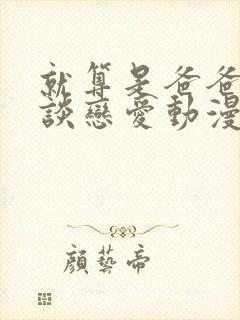 就算是爸爸
談戀愛動漫
顔藝帝